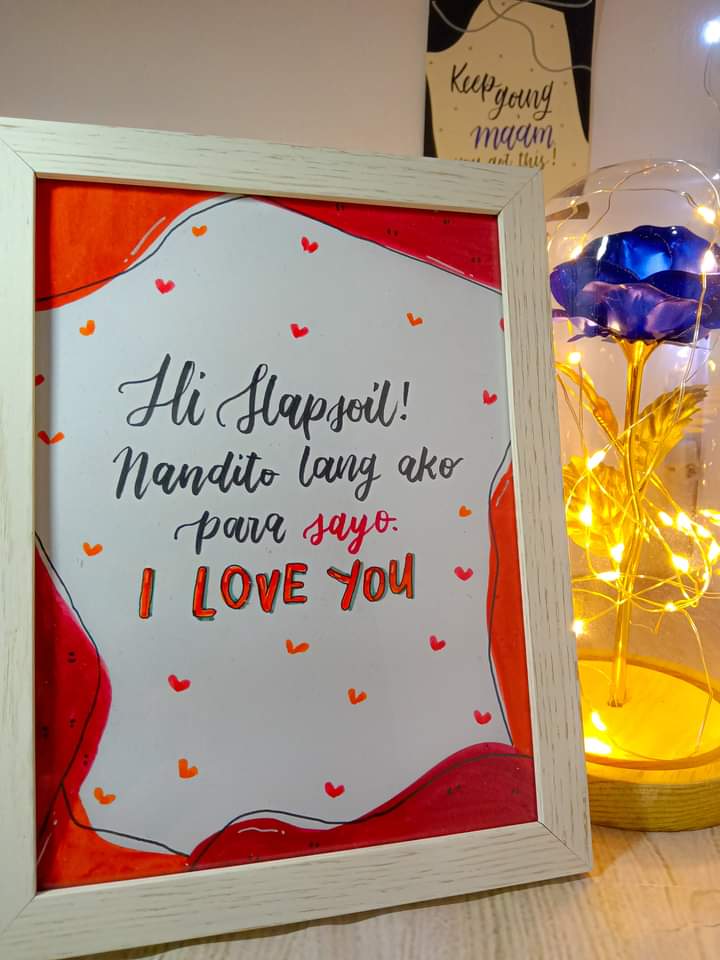 Keep going
maam
you got this!
Hi Slapsoil!
Nandito lang ako
para sayo.
I LOVE YOU